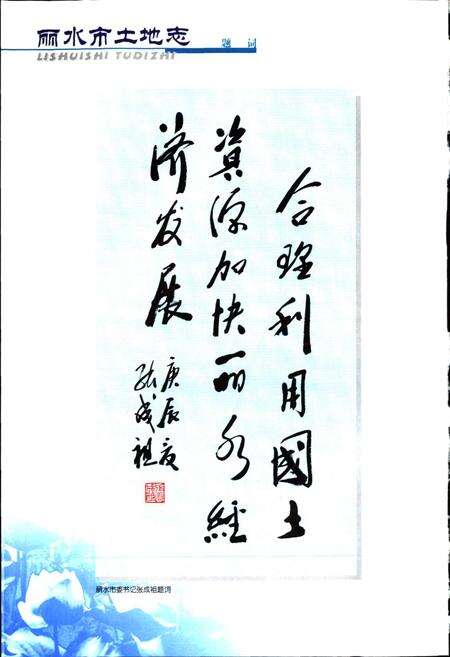 丽水市土地志
LISHUISHI TUDIZHI
题 词
合理利用國土
資源加快丽水經
济发展
庚辰夏
张成祖
丽水市委书记张成祖题词